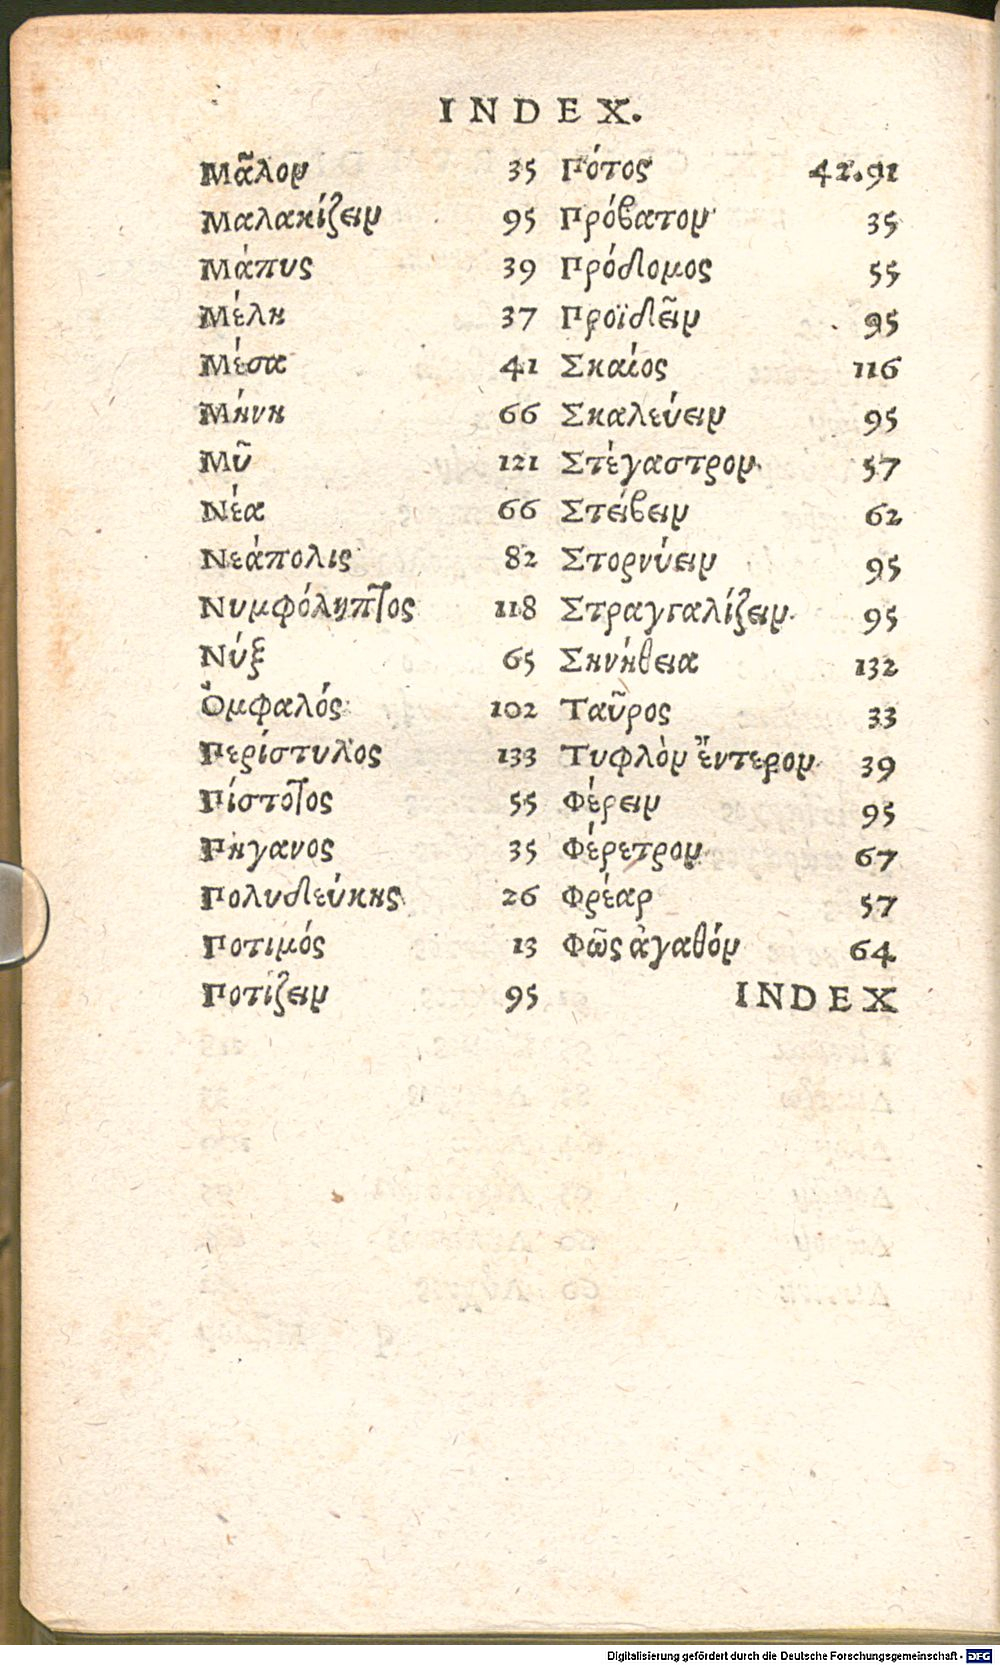 INDEX.
Μᾶλον 35
Μαλακίζειν 95
Μάπυς 39
Μέλη 37
Μέσα 41
Μήνη 66
Μῦ 121
Νέα 66
Νεάπολις 82
Νυμφόληπτος 118
Νύξ 65
Ὀμφαλός 102
Περίστυλος 133
Πίστοτος 55
Πήγανος 35
Πολυδεύκης 26
Ποτιμός 13
Ποτίζειν 95
Πότος 41.91
Πρόβατον 35
Πρόδομος 55
Προϊδεῖν 95
Σκαίος 116
Σκαλεύειν 95
Στέγαστρον 57
Στείβειν 62
Στορνύειν 95
Στραγγαλίζειν 95
Σηνήθεια 132
Ταῦρος 33
Τυφλὸν ἔντερον 39
Φέρειν 95
Φέρετρον 67
Φρέαρ 57
Φῶς ἀγαθόν 64
INDEX
Digitalisierung gefördert durch die Deutsche Forschungsgemeinschaft - DFG